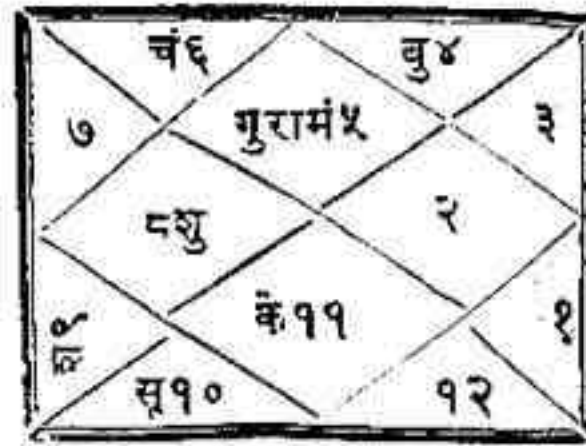 चं६ बु४
७ गुरामं५ ३
८शु २
श९ कें११ १
सू१० १२